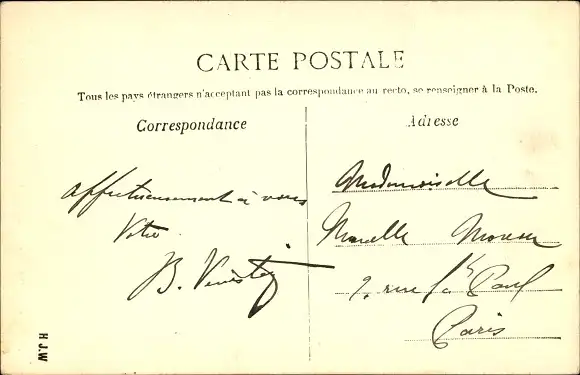 CARTE POSTALE
Tous les pays étrangers n'acceptant pas la correspondance au recto, se renseigner à la Poste.
Correspondance
affectueusement à vous
Votre
B.
Adresse
Mademoiselle
rue St Paul
Paris
H.J.W